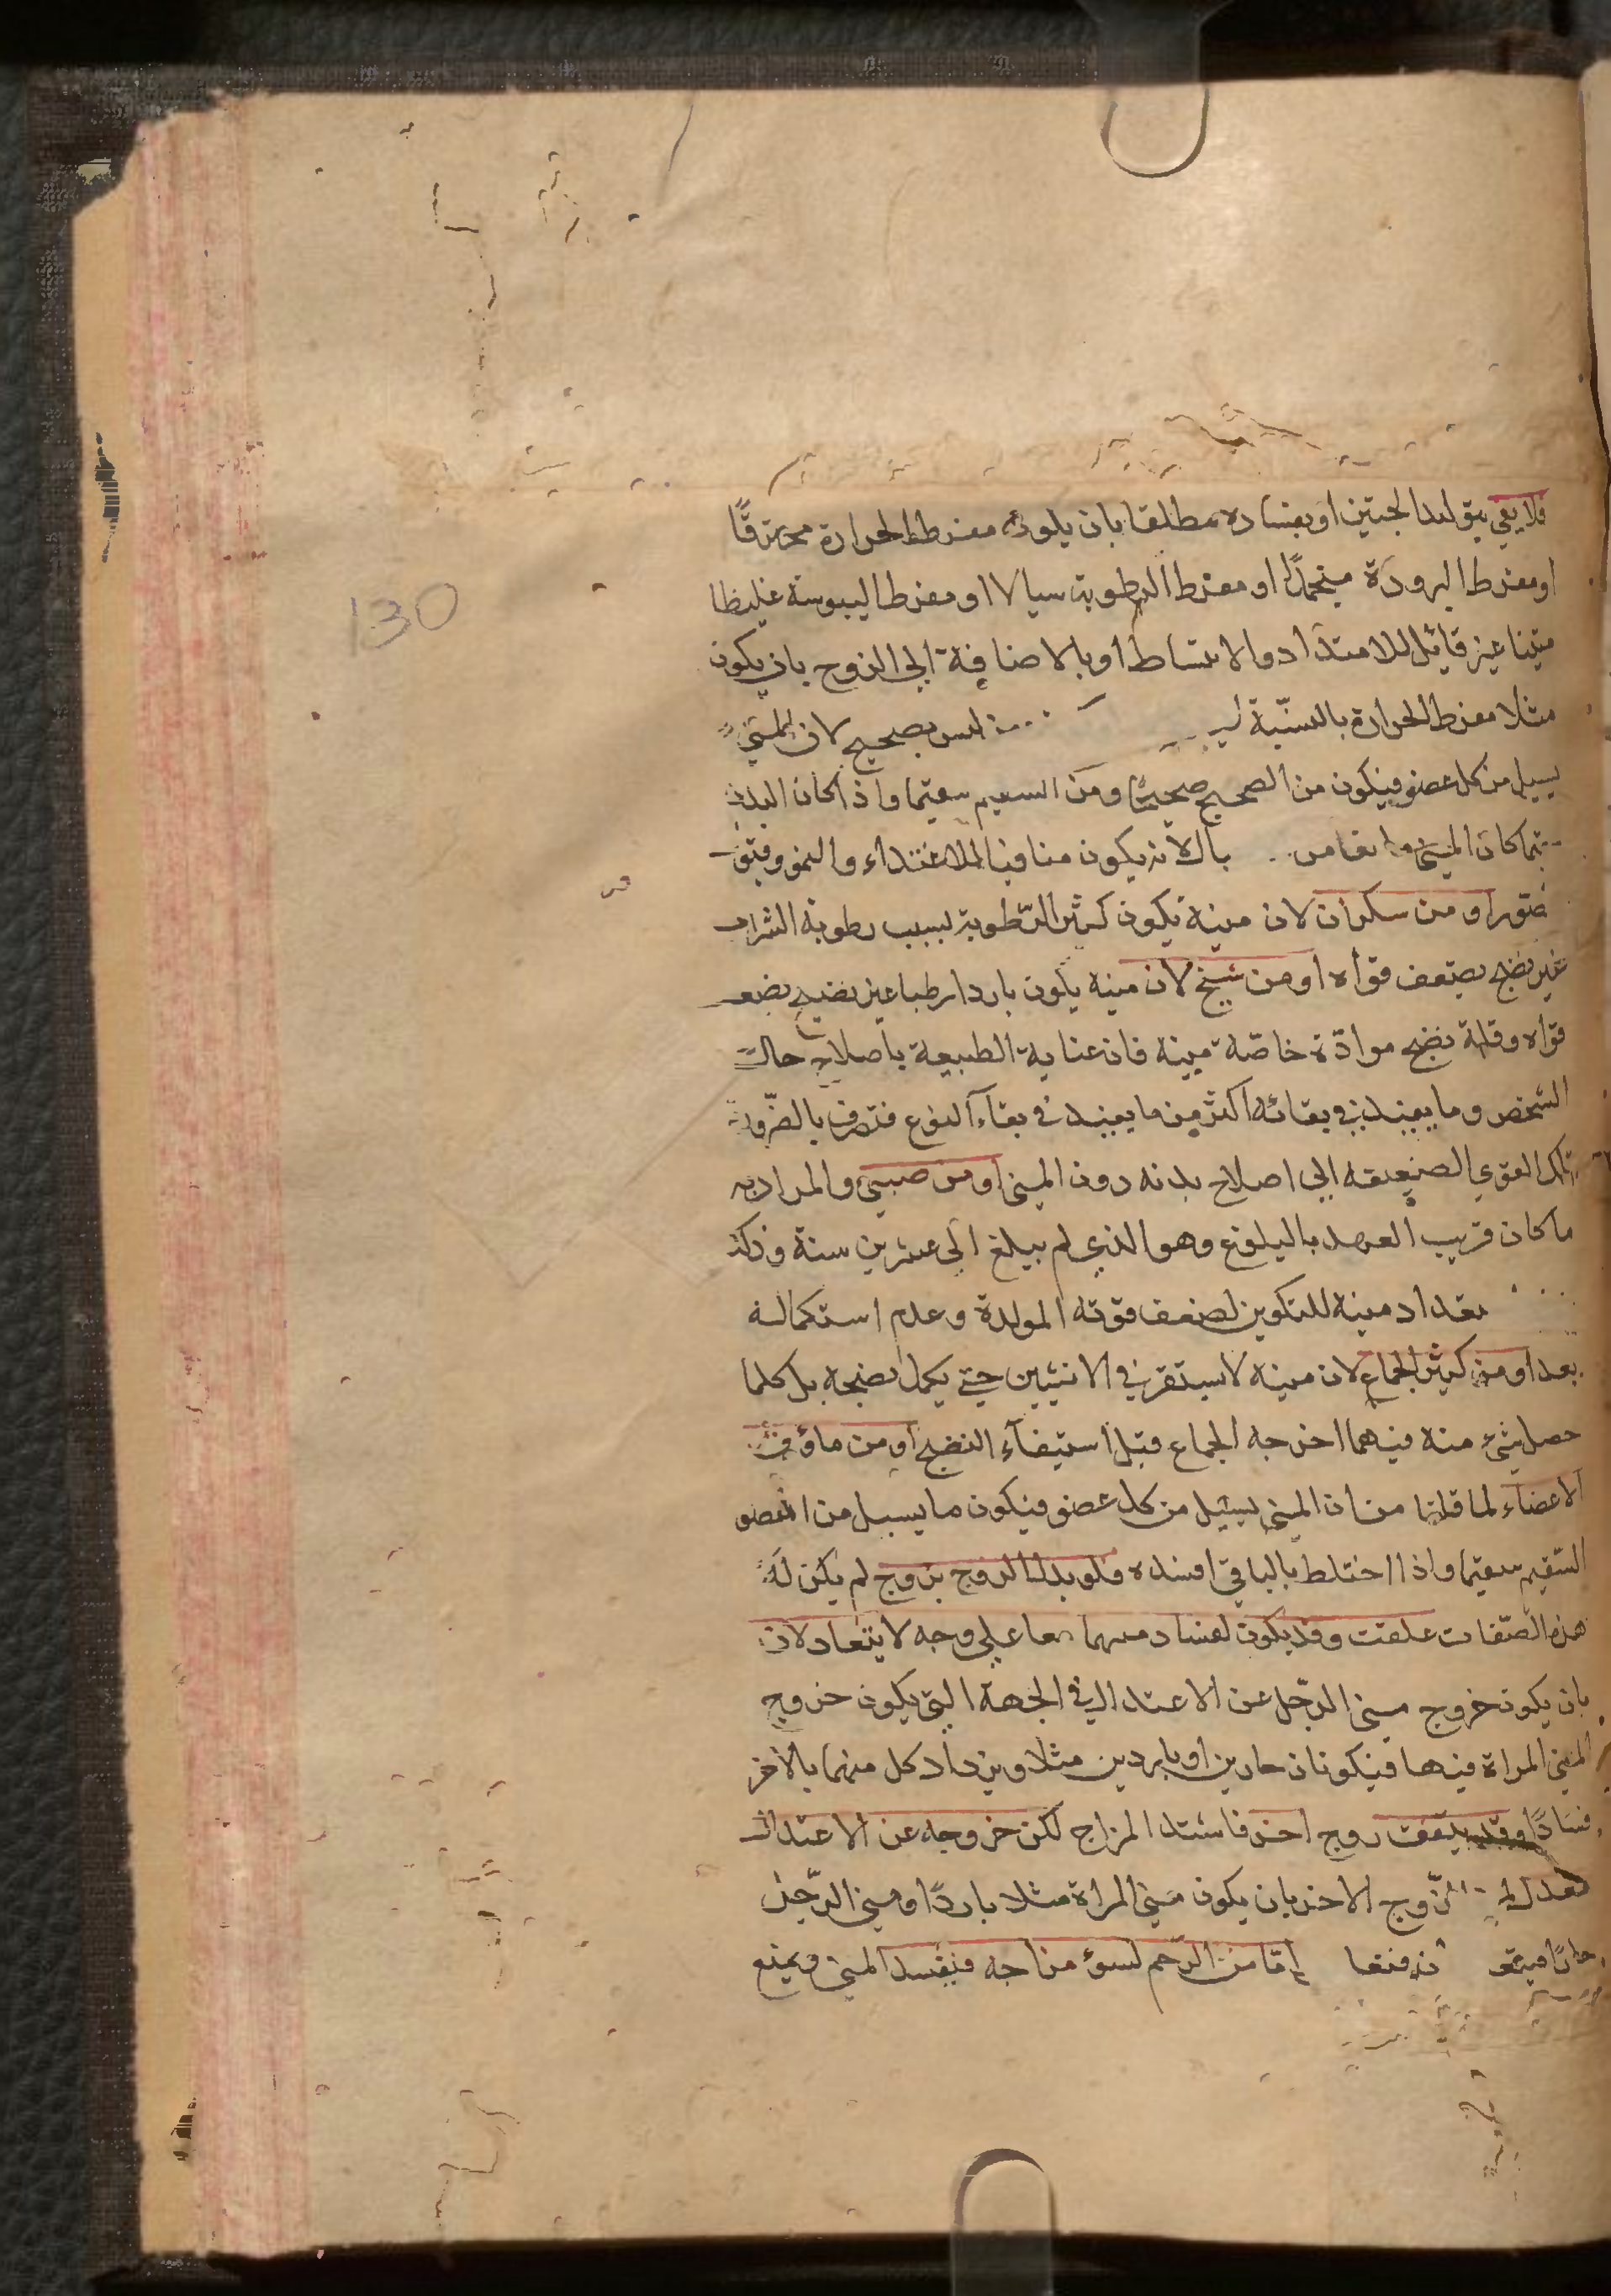 130
فلا يفي بتوليد الجنين او بفساده مطلقا بان يكون مفرط الحرارة محترقًا
او مفرط البرودة منجمدًا او مفرط الرطوبة سيالا او مفرط اليبوسة غليظا
متينا غير قابل للامتداد والانبساط او بالاضافة الى الزوج بان يكون
مثلا مفرط الحرارة بالنسبة ليس بصحيح لان المني
يسيل من كل عضو فيكون من الصحيح صحيحًا ومن السقيم سقيما واذا كان البدن
كان المني بالانه يكون منافيا للاغتذاء والنمو
او من سكران لان منيه يكون كثير الرطوبة لسبب رطوبة الشراب
غير نضج يضعف قواه او من شيخ لان منيه يكون باردا رطبا غير نضيج بضعف
قواه وقلة نضج موادّه خاصّة منيه فان عناية الطبيعة باصلاح حال
الشخص وما يفيد في بقائه اكثر من ما يفيد في بقاء النوع فتصرف بالضّرورة
تلك القوي الضعيفة الى اصلاح بدنه دون المني او من صبي والمراد به
ما كان قريب العهد بالبلوغ وهو الذي لم يبلغ الى عشرين سنة وذلك
منيه للتكوين لضعف قوته المولدة وعدم استكماله
بعد او من كثير الجماع لان منيه لا يستقر في الانثيين حتى يكمل نضجه بل كلما
حصل شيء منه فيهما اخرجه الجماع قبل استيفاء النضج او من ماؤف
الاعضاء لما قلنا من ان المني يسيل من كل عضو فيكون ما يسيل من العضو
السّقيم سقيما واذا اختلط بالباقي افسده ولو بدل الزوج بزوج لم يكن له
هذه الصّفات علقت وقد يكون لفساد منيهما معا على وجه لا يتعادلان
بان يكون خروج مني الرجل عن الاعتدال في الجهة التي يكون خروج
المني المراة فيها فيكونان حارين او باردين مثلا ويزداد كل منهما بالآخر
فسادًا وقد يتفق زوج اخر فاسد المزاج لكن خروجه عن الاعتدال
الزّوج الاخر بان يكون مني المراة مثلا باردًا ومني الرّجل
حارًا إمّا من الرّحم لسوء مزاجه فيفسد المني ويمنع